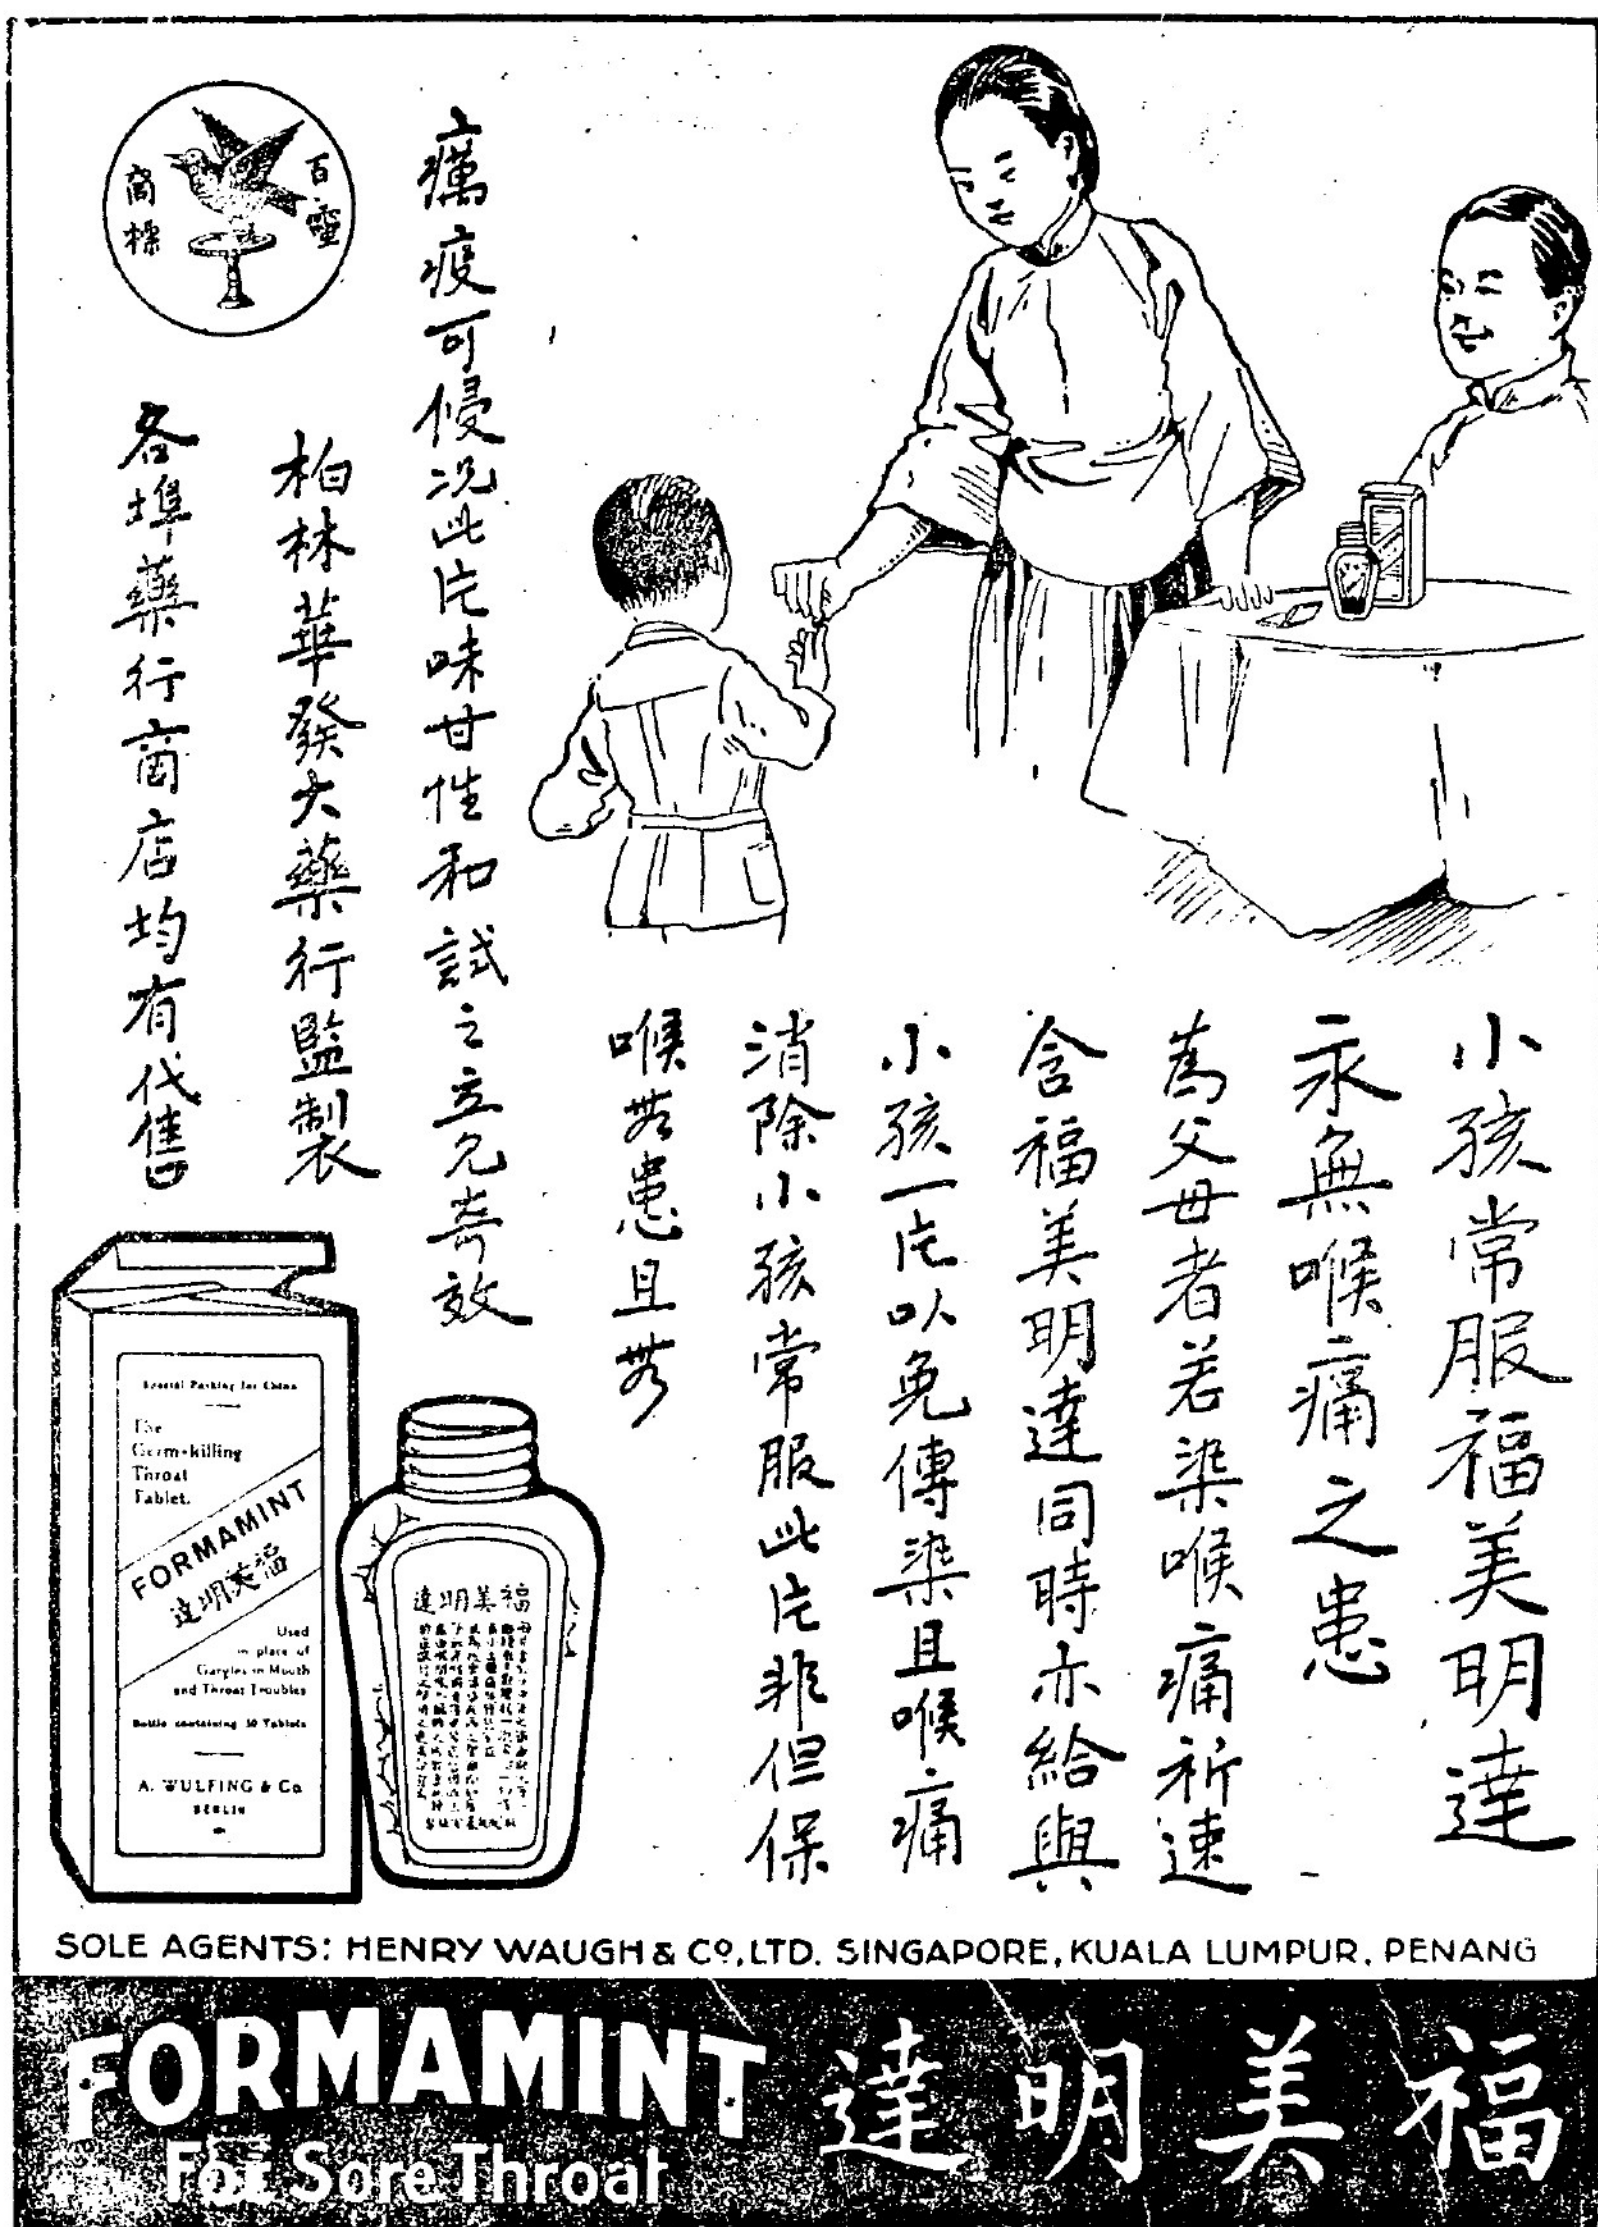 小孩常服福美明達
永無喉痛之患
為父母者若染喉痛祈速
含福美明達同時亦給與
小孩一片以免傳染且喉痛
消除小孩常服此片非但保
喉無患且無
癘疫可侵況此片味甘性和試之立見奇效
柏林華發大藥行監製
各埠藥行商店均有代售
百靈
商標
Special Packing for China
The
Germ-killing
Throat
Tablet.
FORMAMINT
達明美福
Used
in place of
Gargles in Mouth
and Throat Troubles
Bottle containing 50 Tablets
A. WULFING & Co
BERLIN
達明美福
SOLE AGENTS: HENRY WAUGH & CO., LTD. SINGAPORE, KUALA LUMPUR, PENANG
FORMAMINT 達明美福
For Sore Throat